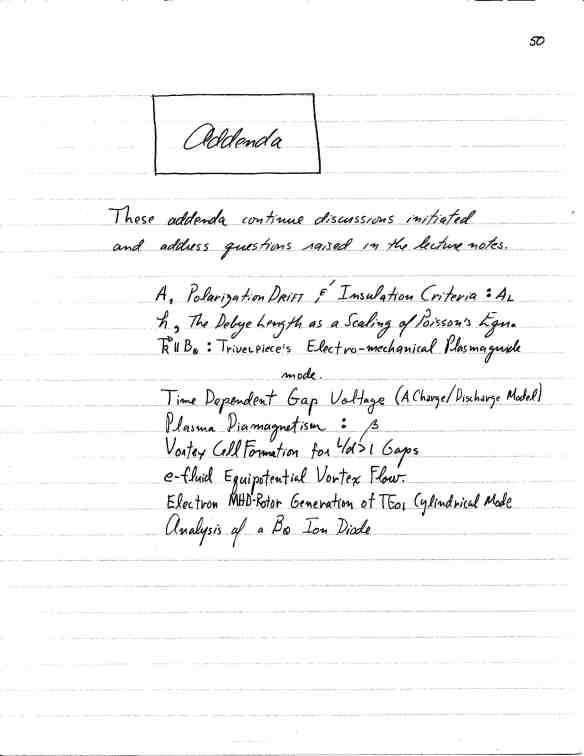 50
Addenda
These addenda continue discussions initiated
and address questions raised in the lecture notes.
A, Polarization DRIFT & Insulation Criteria : A⊥
h, The Debye Length as a Scaling of Poisson's Eqn.
k⃗ ∥ B₀ : Trivelpiece's Electro-mechanical Plasmaguide
mode.
Time Dependent Gap Voltage (A Charge/Discharge Model)
Plasma Diamagnetism : β
Vortex Cell Formation for L/d>1 Gaps
e-fluid Equipotential Vortex Flow.
Electron MHD-Rotor Generation of TE01 Cylindrical Mode
Analysis of a Bθ Ion Diode